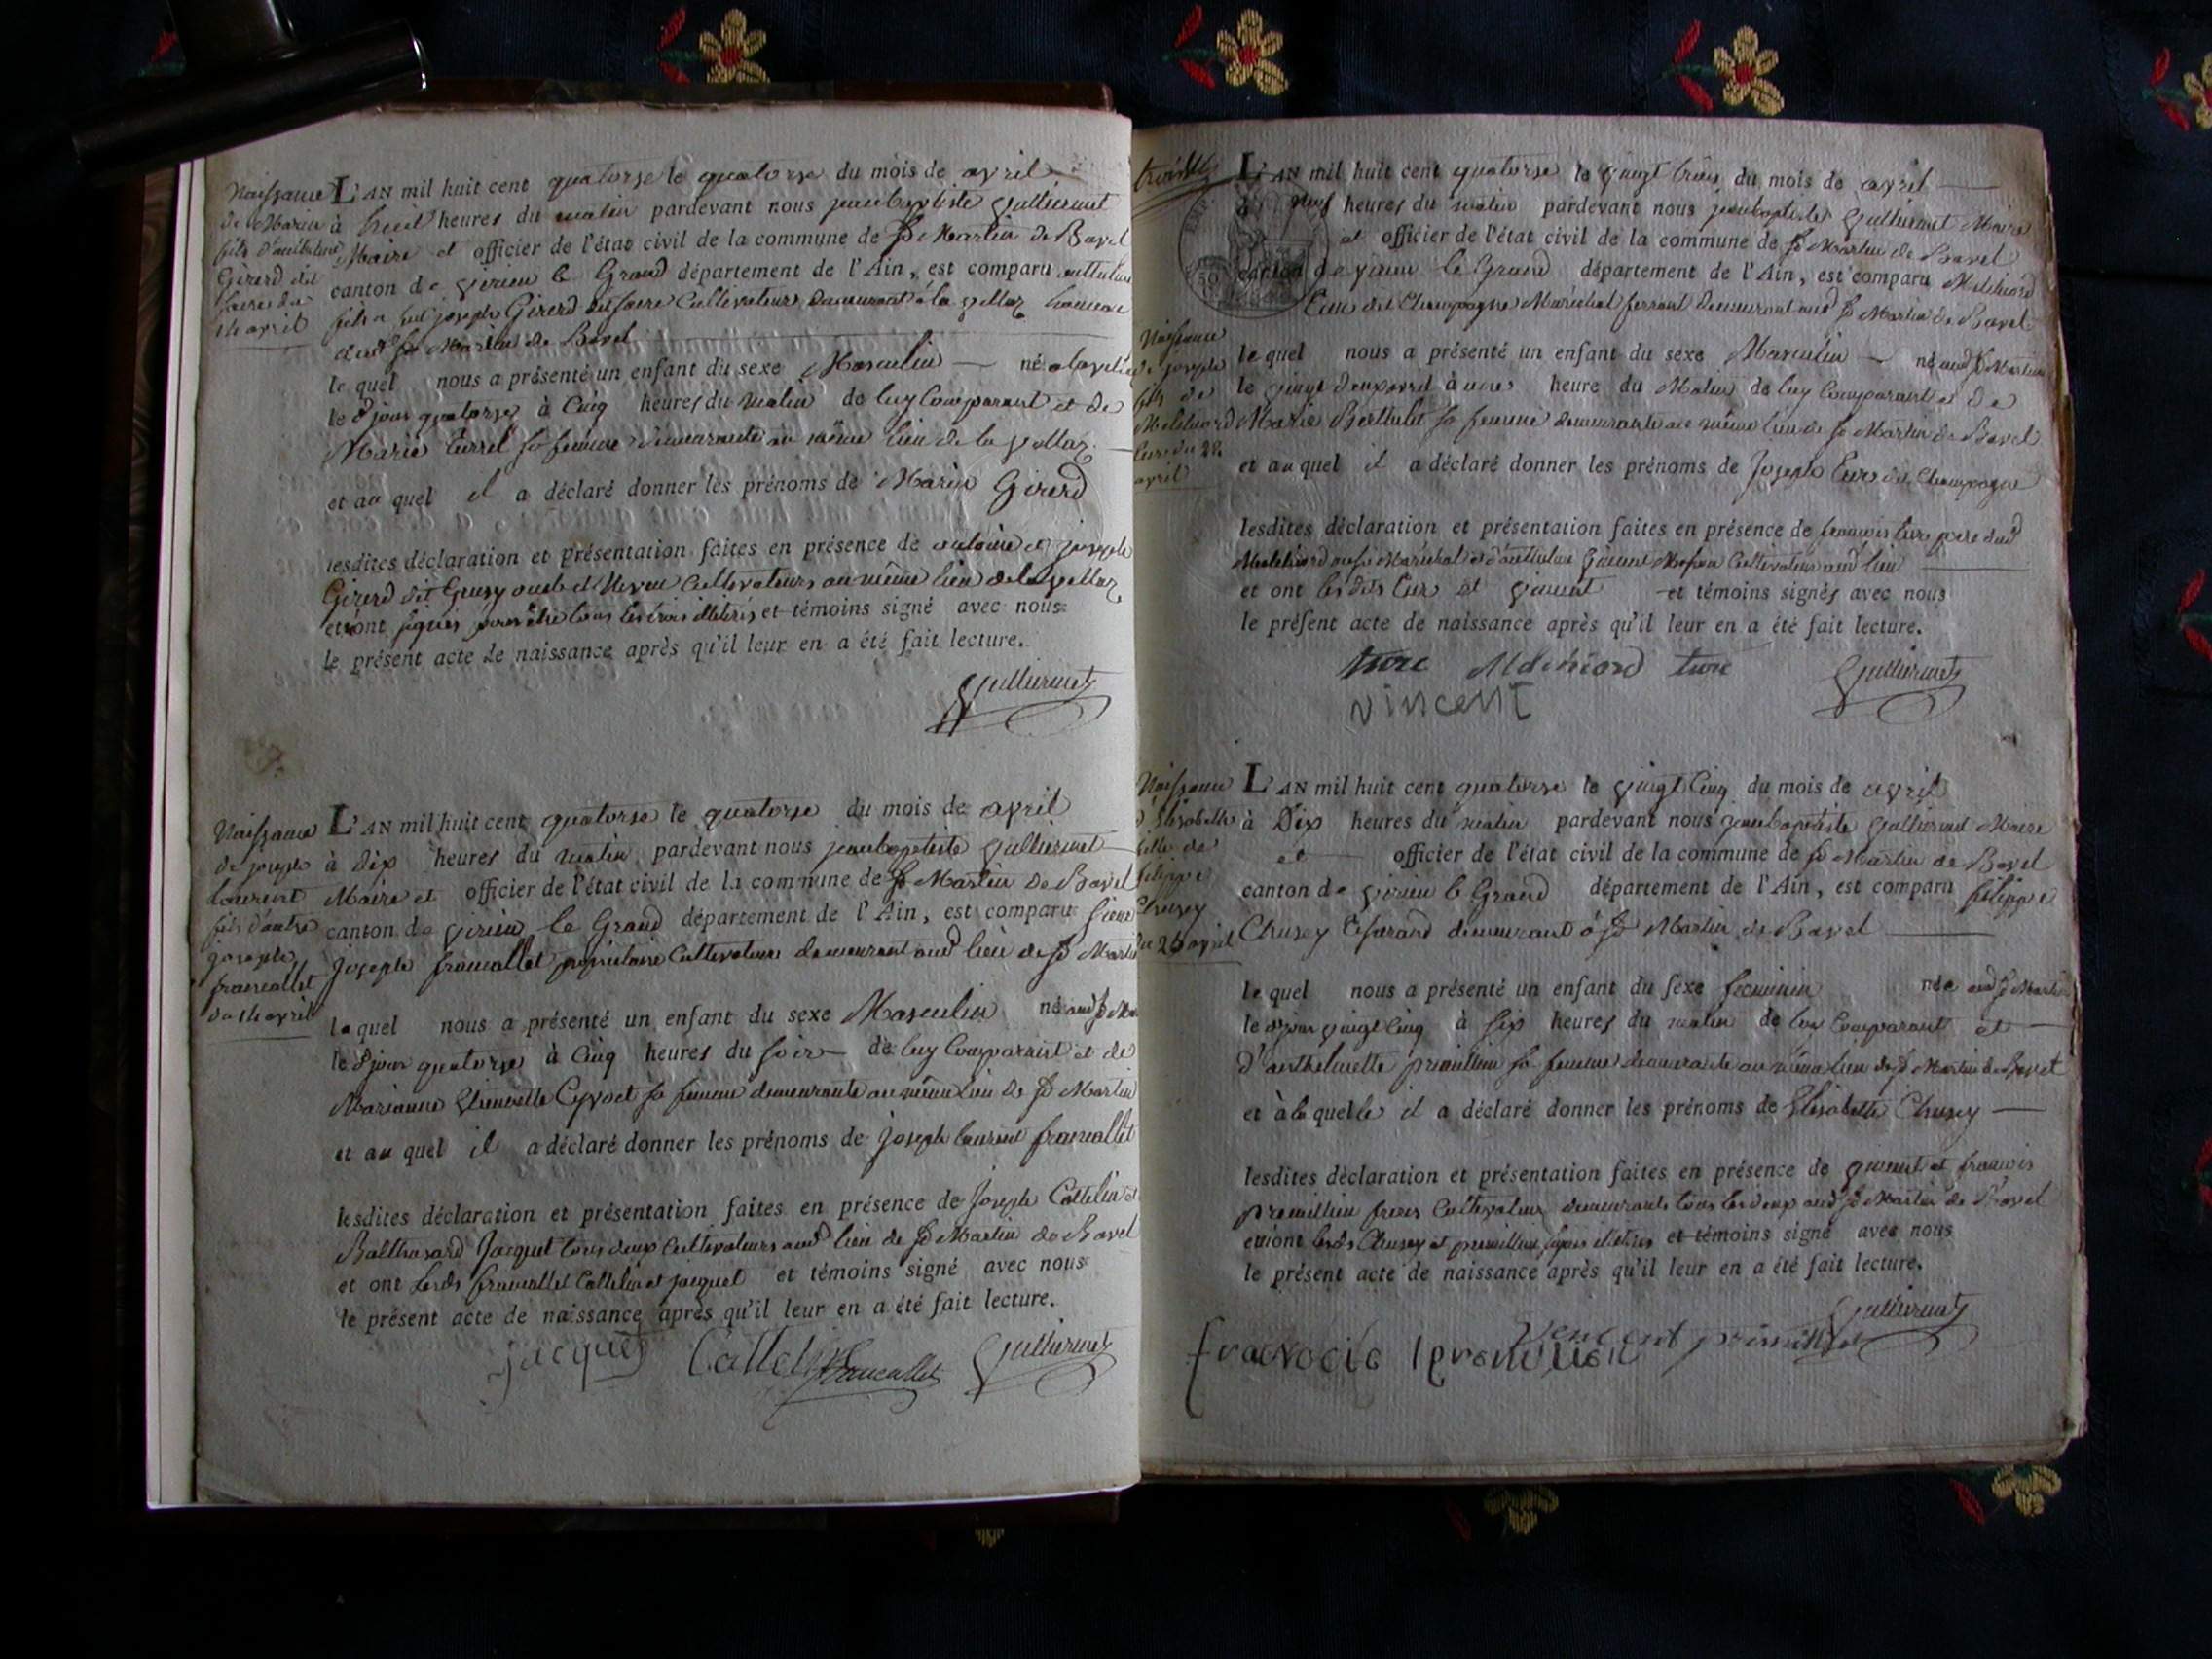 Naissance
de Marin
fils d'anthelme
Girerd dit
faire du
14 avril
L'AN mil huit cent quatorse le quatorse du mois de avril
à huit heures du matin pardevant nous jeanbaptiste Gulliermet
Maire et officier de l'état civil de la commune de St Martin de Bavel
canton de virieu le Grand département de l'Ain, est comparu anthelme
fils a feu joseph Girerd cultivateur demeurant à la vellaz hameau
dudt St Martin de Bavel
le quel nous a présenté un enfant du sexe Masculin né
le d jour quatorse à Cinq heures du matin de luy Comparant et de
Marie sa femme demeurante au même lieu de la vellaz
et au quel il a déclaré donner les prénoms de Marin Girerd
lesdites déclaration et présentation faites en présence de antoine et joseph
Girerd dit Grusy oncle et Neveu Cultivateurs au même lieu de la vellaz
et ont tous les trois illiterés et témoins signé avec nous
le présent acte de naissance après qu'il leur en a été fait lecture.
Gulliermet
Naissance
de joseph
laurent
fils d'autre
joseph
francallet
du 14 avril
L'AN mil huit cent quatorse le quatorse du mois de avril
à Dix heures du matin pardevant nous jeanbaptiste Gulliermet
Maire et officier de l'état civil de la commune de St Martin De Bavel
canton de virieu le Grand département de l'Ain, est comparu
Joseph francallet propriétaire Cultivateur demeurant aud lieu de St Martin
le quel nous a présenté un enfant du sexe Masculin né aud St
le d jour quatorse à Cinq heures du soir de luy Comparant et de
Marianne sa femme demeurante au même lieu de St Martin
et au quel il a déclaré donner les prénoms de Joseph laurent francallet
lesdites déclaration et présentation faites en présence de Joseph Cattelin et
Balthasard Jacquet tous deux Cultivateurs aud lieu de St Martin de Bavel
et ont lesds francallet Cattelin et jacquet et témoins signé avec nous
le présent acte de naissance après qu'il leur en a été fait lecture.
jacquet Cattelin francallet Gulliermet
L'AN mil huit cent quatorse le vingt trois du mois de avril
heures du matin pardevant nous jeanbaptiste Gulliermet Maire
et officier de l'état civil de la commune de St Martin de Bavel
canton de virieu le Grand département de l'Ain, est comparu Melchiord
dit Champagne Maréchal ferrant demeurant aud St Martin de Bavel
Naissance
de joseph
fils de
Melchiord
avril
le quel nous a présenté un enfant du sexe Masculin né aud St Martin
le vingt deux avril à une heure du Matin de luy Comparant et de
Marie Berthelet sa femme demeurante au même lieu de St Martin de Bavel
et au quel il a déclaré donner les prénoms de Joseph dit Champagne
lesdites déclaration et présentation faites en présence de françois père dud
Melchiord aussi Maréchal et d'anthelme vincent Cultivateur aud lieu
et ont lesdits et vincent et témoins signés avec nous
le présent acte de naissance après qu'il leur en a été fait lecture.
ture Melchiord ture Gulliermet
vincent
Naissance
d'Elisabette
fille de
filippe
Chusey
du 25 avril
L'AN mil huit cent quatorse le vingt Cinq du mois de avril
à Dix heures du matin pardevant nous jeanbaptiste Gulliermet Maire
et officier de l'état civil de la commune de St Martin de Bavel
canton de virieu le Grand département de l'Ain, est comparu filippe
Chusey demeurant à St Martin de Bavel
le quel nous a présenté un enfant du sexe feminin née aud St Martin
le d jour vingt Cinq à six heures du matin de luy Comparant et
d'anthelmette premillieu sa femme demeurante au même lieu de St Martin de Bavel
et à la quelle il a déclaré donner les prénoms de Elisabette Chusey
lesdites déclaration et présentation faites en présence de vincent et françois
premillieu freres Cultivateurs demeurants tous les deux aud St Martin de Bavel
lesds Chusey et premillieu et témoins signé avec nous
le présent acte de naissance après qu'il leur en a été fait lecture.
Gulliermet